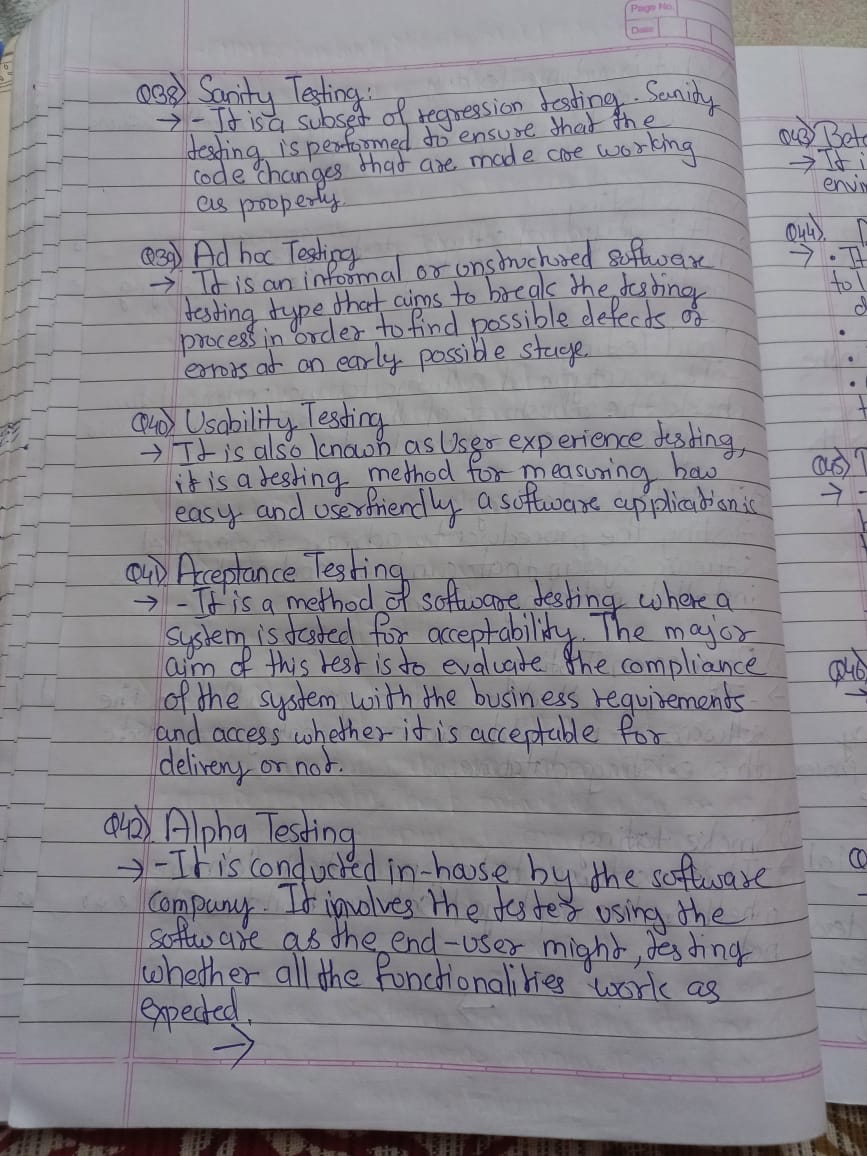 Page No.
Date
Q38) Sanity Testing:
→ - It is a subset of regression testing. Sanity
testing is performed to ensure that the
code changes that are made are working
as properly.
Q39) Ad hoc Testing
→ It is an informal or unstructured software
testing type that aims to break the testing
process in order to find possible defects or
errors at an early possible stage.
Q40) Usability Testing
→ It is also known as User experience testing,
it is a testing method for measuring how
easy and userfriendly a software application is
Q41) Acceptance Testing
→ - It is a method of software testing where a
system is tested for acceptability. The major
aim of this test is to evaluate the compliance
of the system with the business requirements
and access whether it is acceptable for
delivery or not.
Q42) Alpha Testing
→ - It is conducted in-house by the software
company. It involves the tester using the
software as the end-user might, testing
whether all the functionalities work as
expected.
→
Q43) Bet
→ It i
envir
Q44).
→ • It
to
Q45)
→
Q46)